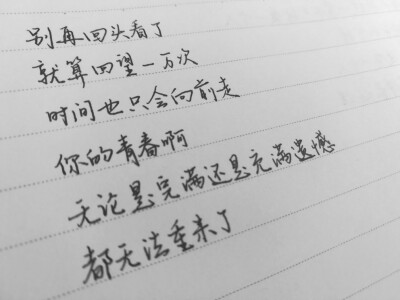 别再回头看了
就算回望一万次
时间也只会向前走
你的青春啊
无论是完满还是充满遗憾
都无法重来了